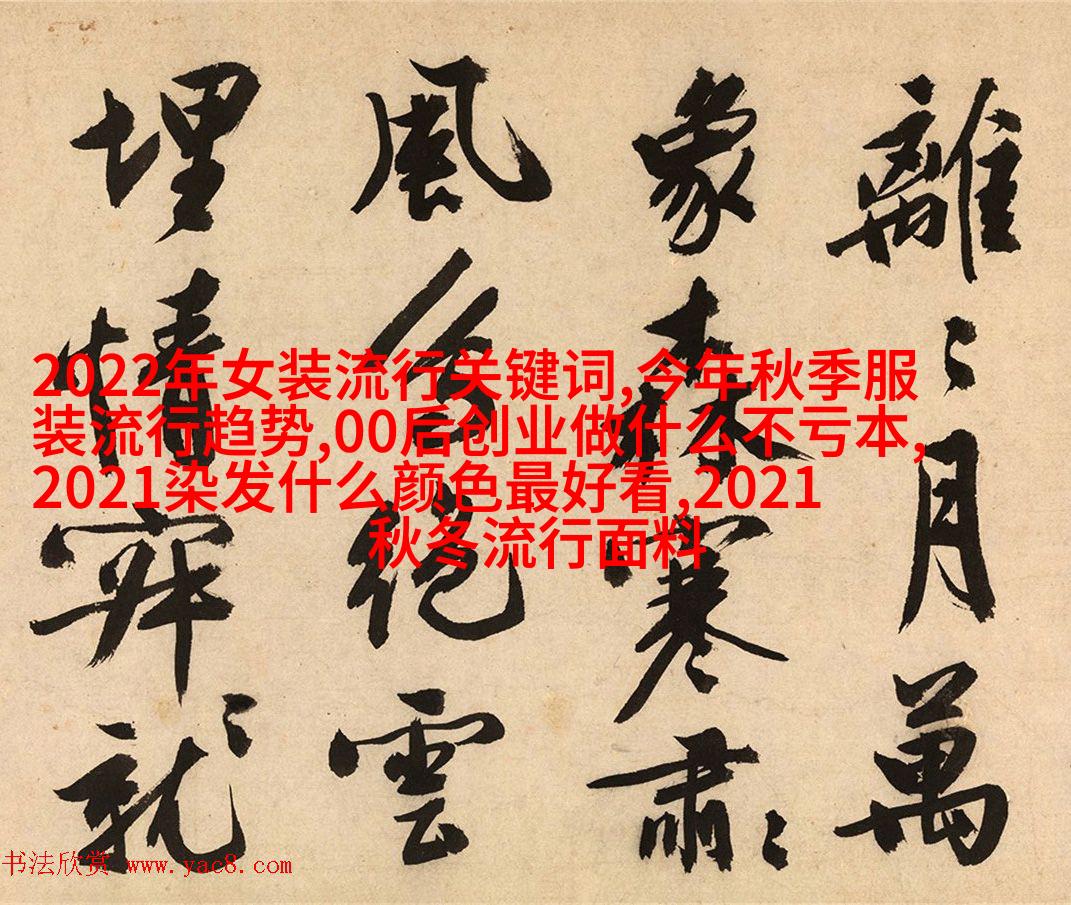 離〻月萬
象森寒肅〻
風絕雲
埋情穽就〻
2022年女装流行关键词,今年秋季服
装流行趋势,00后创业做什么不亏本,
2021染发什么颜色最好看,2021
秋冬流行面料
书法欣赏 www.yac8.com